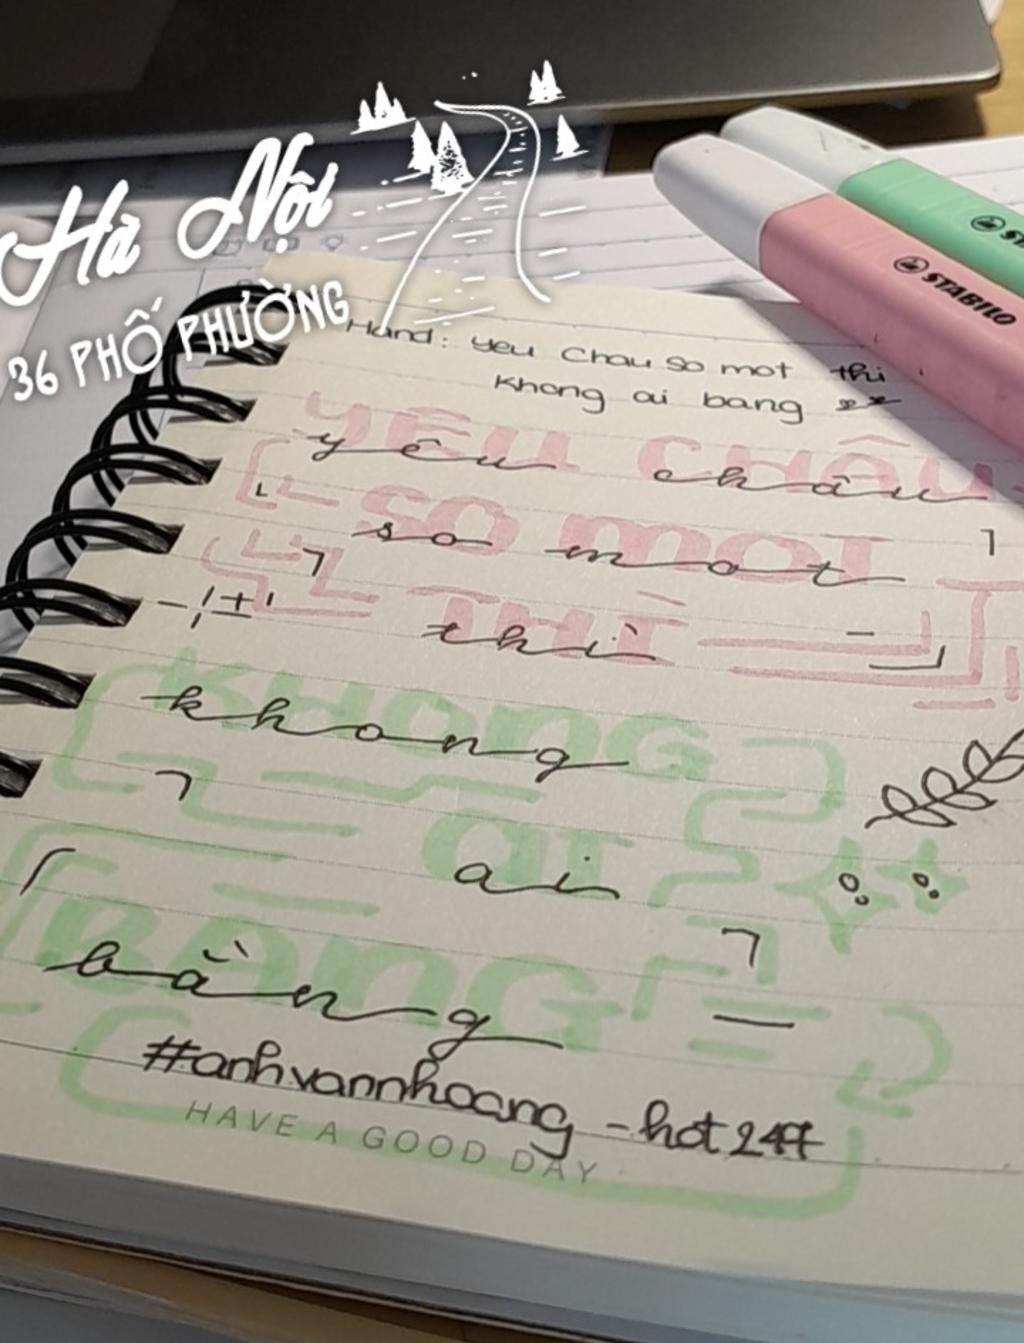 Hà Nội
36 PHỐ PHƯỜNG
STABILO
Hand: yeu chau so mot thi
khong ai bang
YÊU CHÂU
yêu châu
SO MOT
so mot
THÌ
thì
KHONG
khong
AI
ai
BẰNG
bằng
#anhvannhoang - hot247
HAVE A GOOD DAY